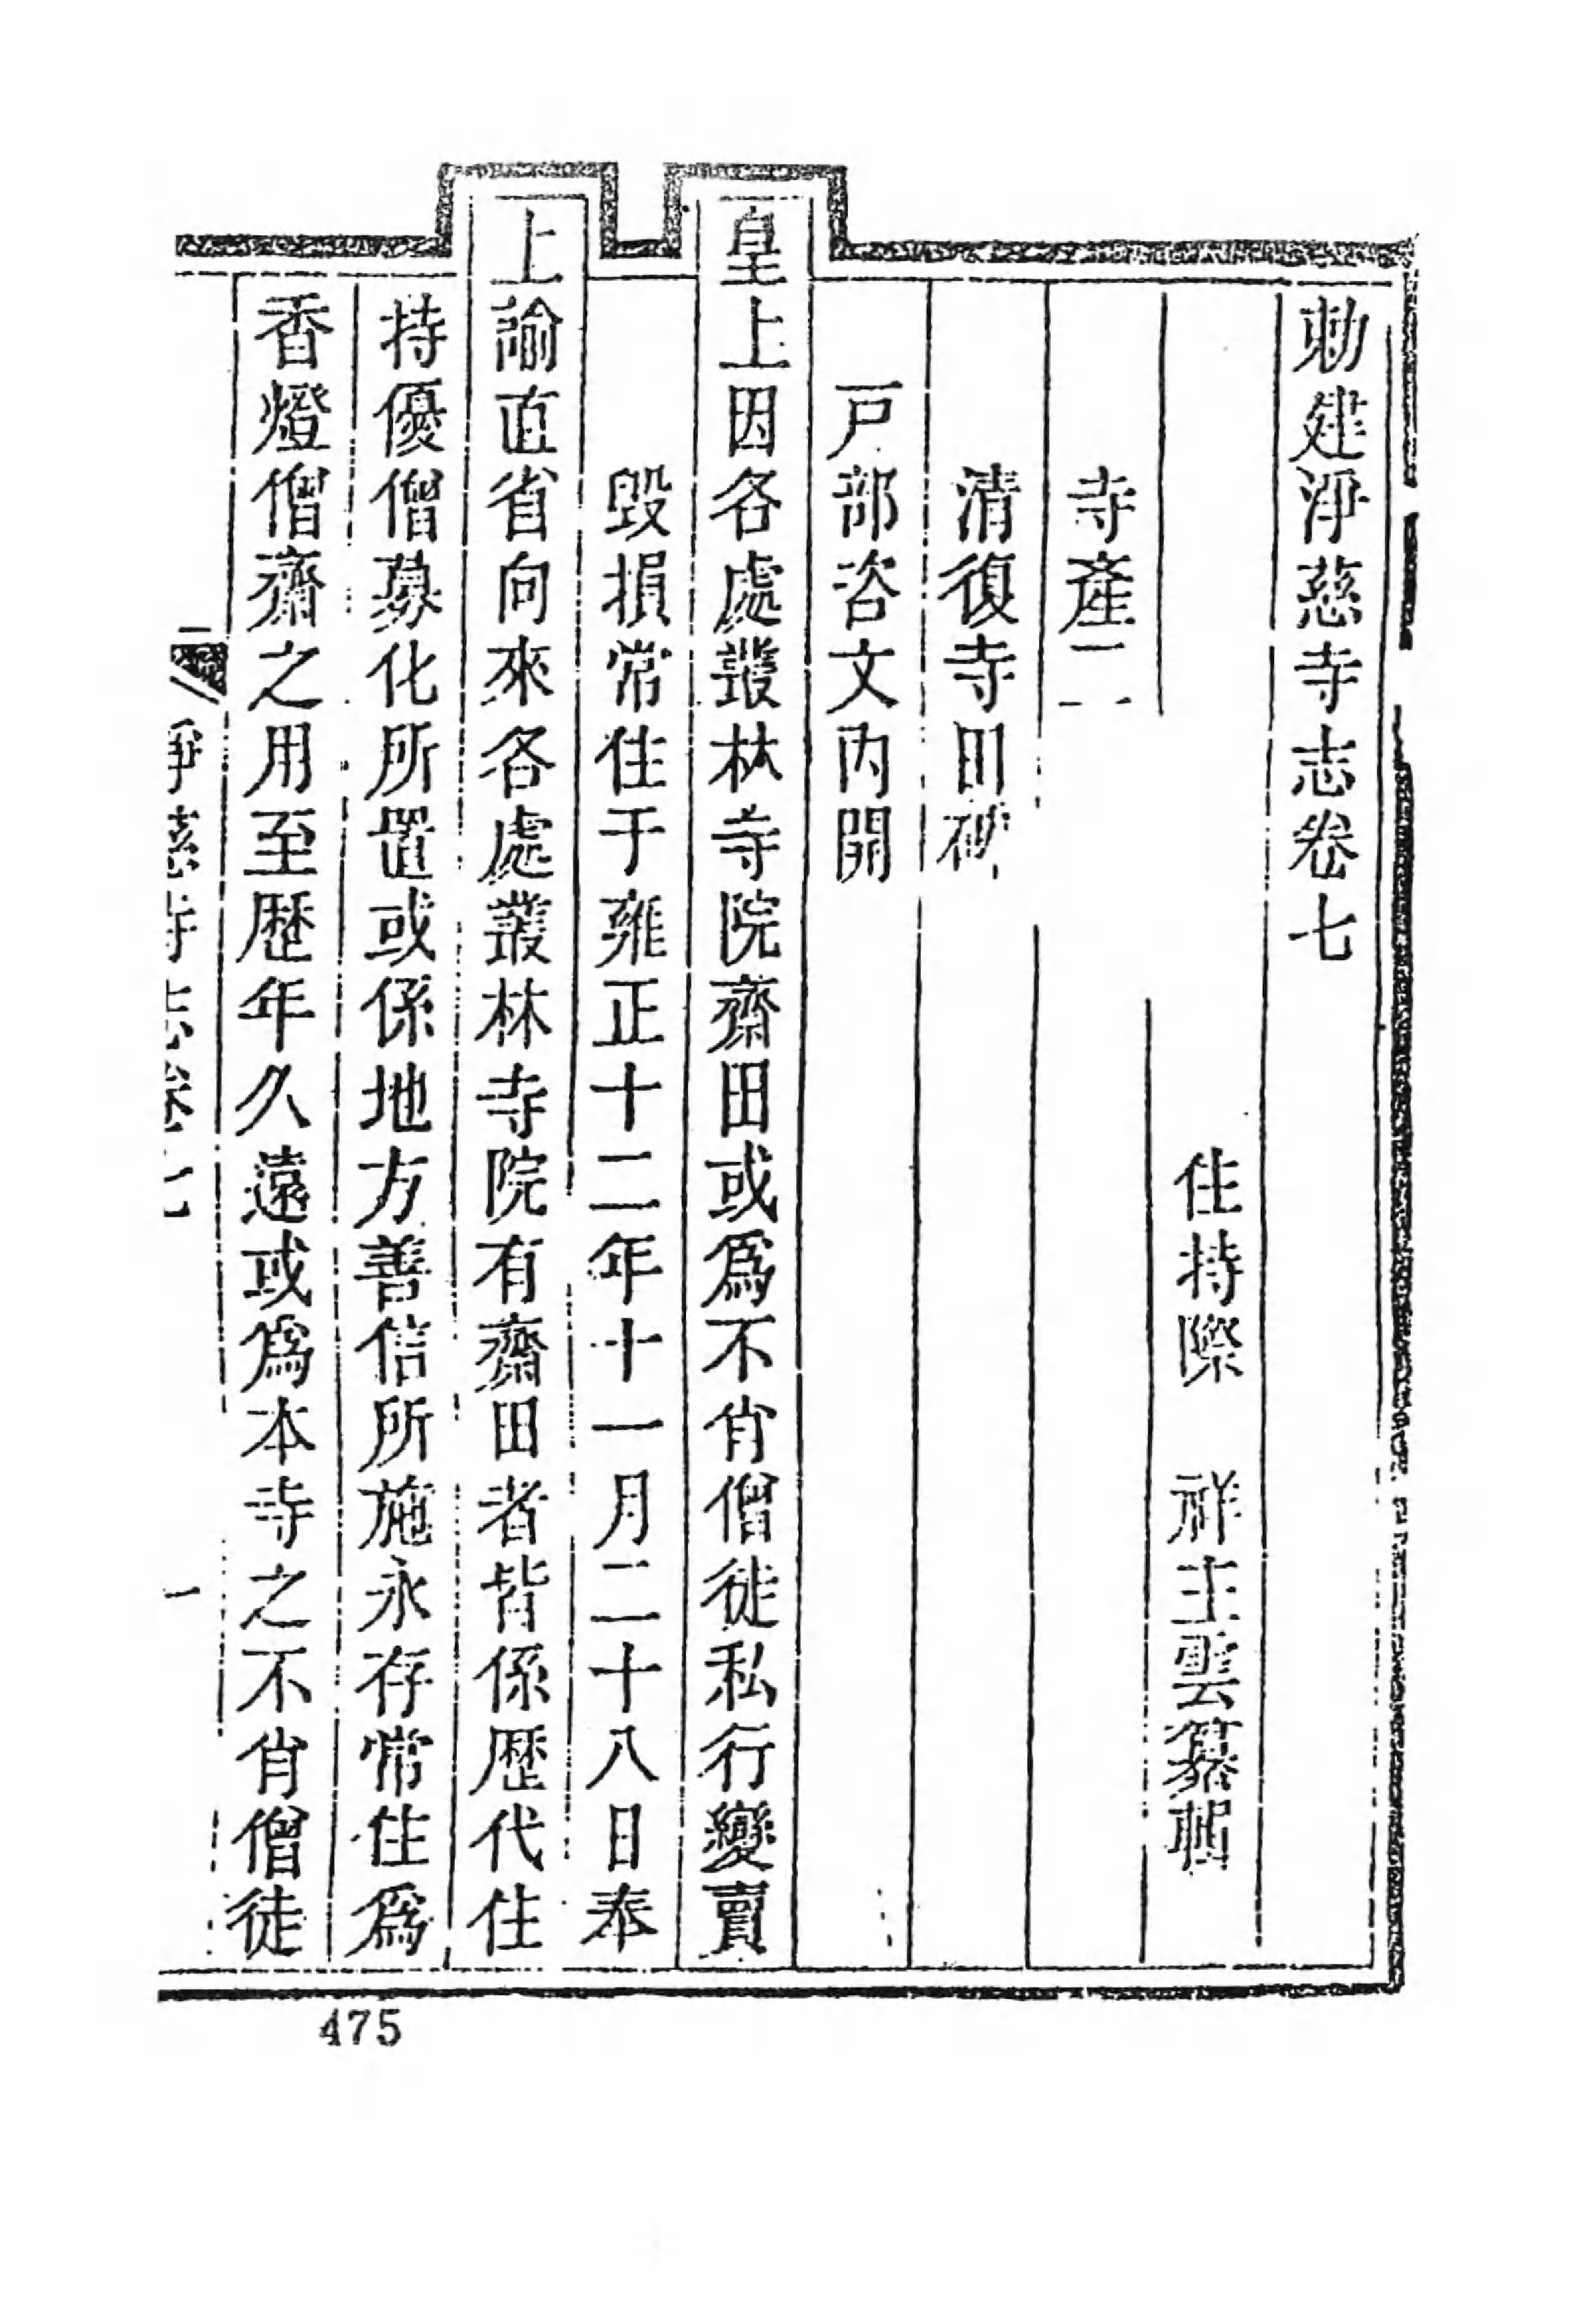 勅建淨慈寺志卷七
住持際　祥主雲纂輯
寺產二
清復寺田碑
戸部咨文內開
皇上因各處叢林寺院齋田或爲不肖僧徒私行變賣
毀損常住于雍正十二年十一月二十八日奉
上諭直省向來各處叢林寺院有齋田者皆係歷代住
持優僧募化所置或係地方善信所施永存常住爲
香燈僧齋之用至歷年久遠或爲本寺之不肖僧徒
淨慈寺志卷七
一
475